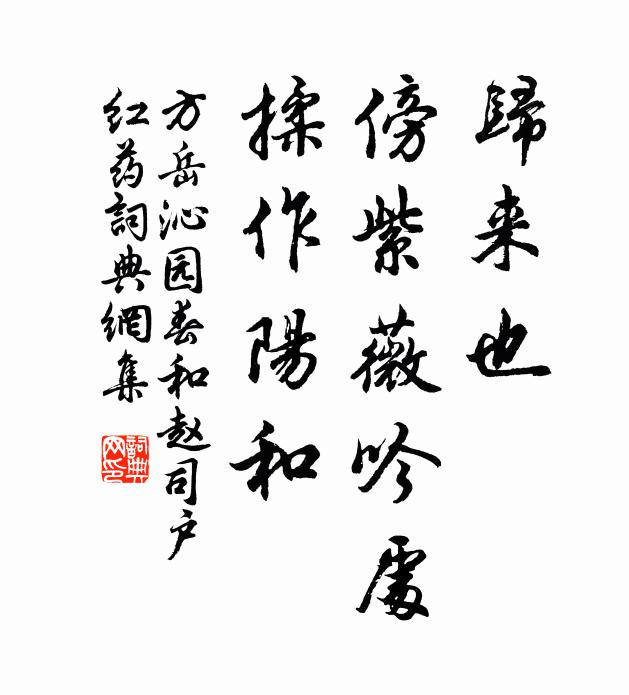 歸来也
傍紫薇吟處
揉作陽和
方岳沁园春和赵司户
红药詞典網集
詞典网印